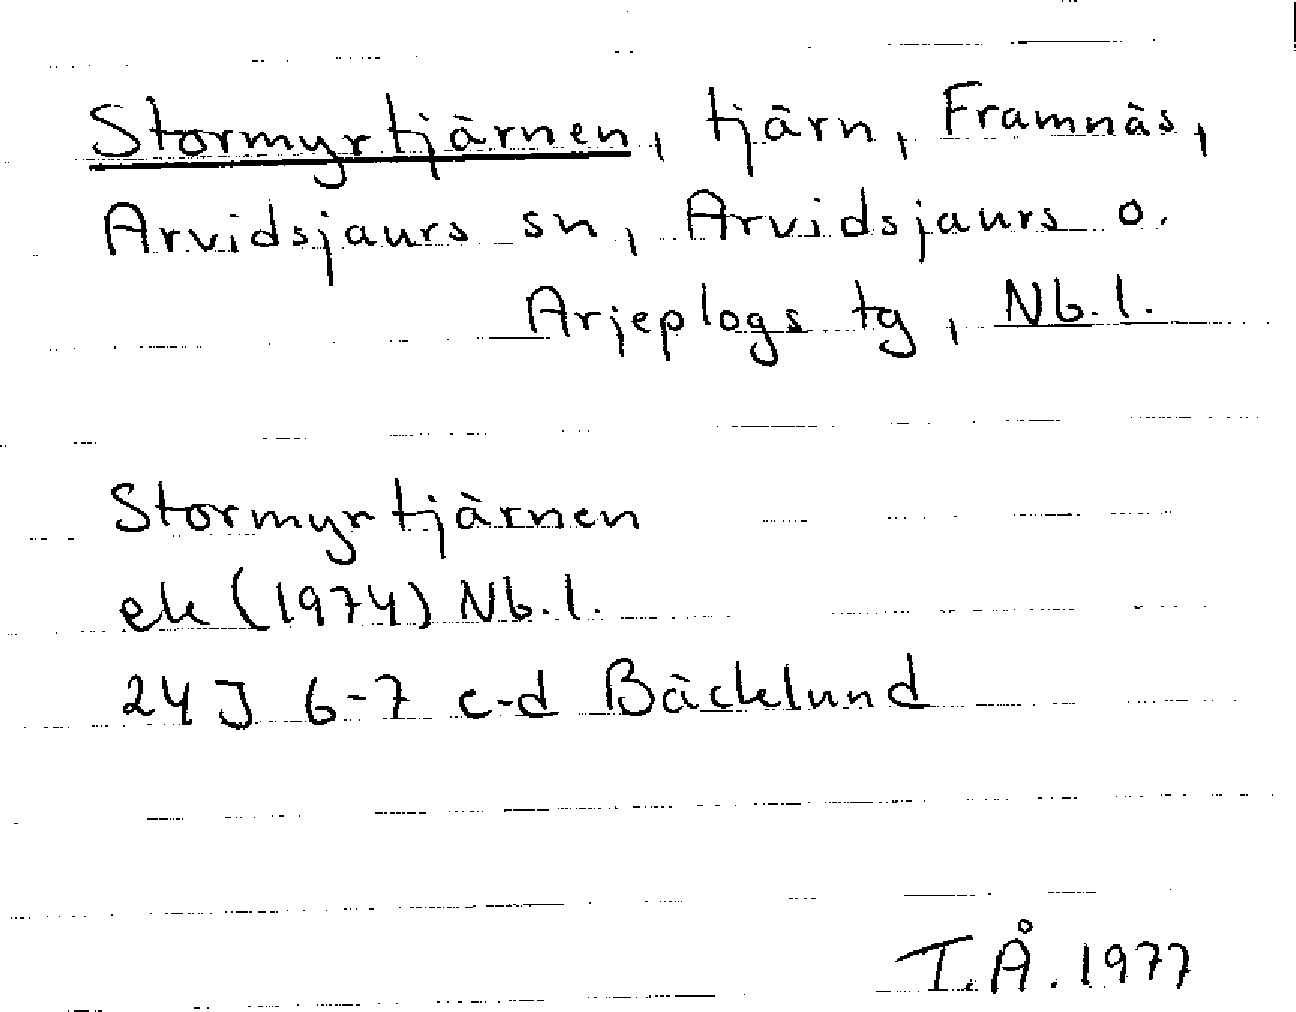 Stormyrtjärnen, tjärn, Framnäs,
Arvidsjaurs sn, Arvidsjaurs o.
Arjeplogs tg, Nb.l.
Stormyrtjärnen
ek (1974) Nb.l.
24 J 6-7 c-d Bäcklund
I.Å. 1977